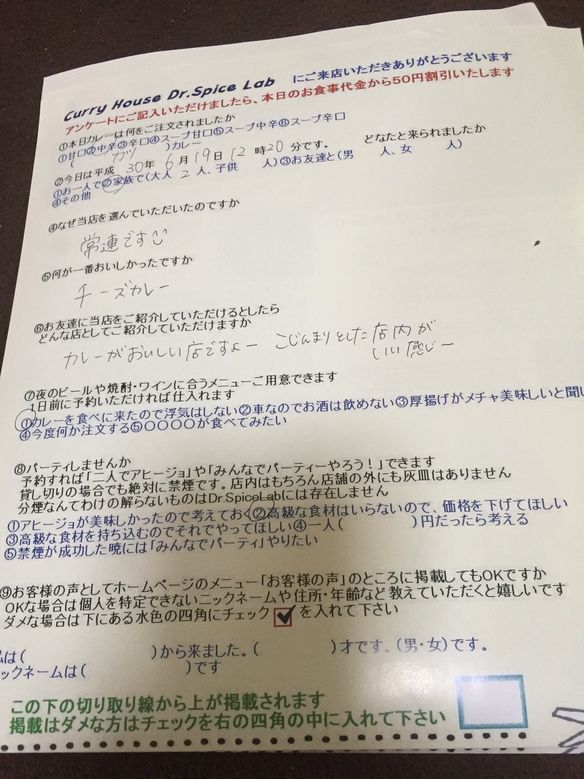 Curry House Dr.Spice Lab にご来店いただきありがとうございます
アンケートにご記入いただけましたら、本日のお食事代金から50円割引いたします
①本日カレーは何をご注文されましたか
①甘口②中辛③辛口④スープ甘口⑤スープ中辛⑥スープ辛口
( カツ )カレー
②今日は平成 30年 6月19日12時20分です。 どなたと来られましたか
①お一人で②家族で(大人 2人、子供 人)③お友達と(男 人、女 人)
④その他
④なぜ当店を選んでいただいたのですか
常連です
⑤何が一番おいしかったですか
チーズカレー
⑥お友達に当店をご紹介していただけるとしたら
どんな店としてご紹介していただけますか
カレーがおいしい店ですよー こじんまりとした店内が
いい感じー
⑦夜のビールや焼酎・ワインに合うメニューご用意できます
1日前に予約いただければ仕入れます
①カレーを食べに来たので浮気はしない②車なのでお酒は飲めない③厚揚げがメチャ美味しいと聞い
④今度何か注文する⑤〇〇〇〇が食べてみたい
⑧パーティしませんか
予約すれば「二人でアヒージョ」や「みんなでパーティーやろう!」できます
貸し切りの場合でも絶対に禁煙です。店内はもちろん店舗の外にも灰皿はありません
分煙なんてわけの解らないものはDr.SpiceLabには存在しません
①アヒージョが美味しかったので考えておく②高級な食材はいらないので、価格を下げてほしい
③高級な食材を持ち込むのでそれでやってほしい④一人( )円だったら考える
⑤禁煙が成功した暁には「みんなでパーティ」やりたい
⑨お客様の声としてホームページのメニュー「お客様の声」のところに掲載してもOKですか
OKな場合は個人を特定できないニックネームや住所・年齢など教えていただくと嬉しいです
ダメな場合は下にある水色の四角にチェック を入れて下さい
は( )から来ました。( )才です。(男・女)です。
ックネームは( )です
この下の切り取り線から上が掲載されます
掲載はダメな方はチェックを右の四角の中に入れて下さい